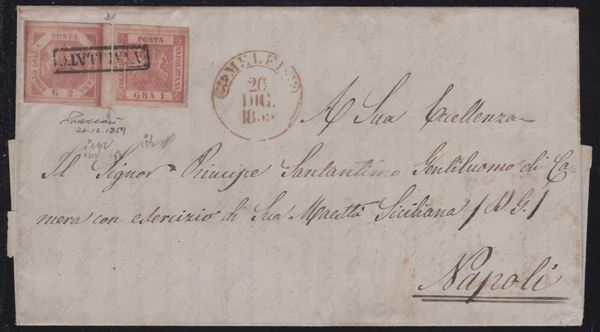 POSTA
POSTA
NAPOLETANA
G. 2
GRA 1
ANNULLATO
MELFI
20
DIC.
1859
20.12.1859
A Sua Eccellenza
Il Signor Principe Santantimo Gentiluomo di Ca=
mera con esercizio di Sua Maestà Siciliana / D. G. /
Napoli